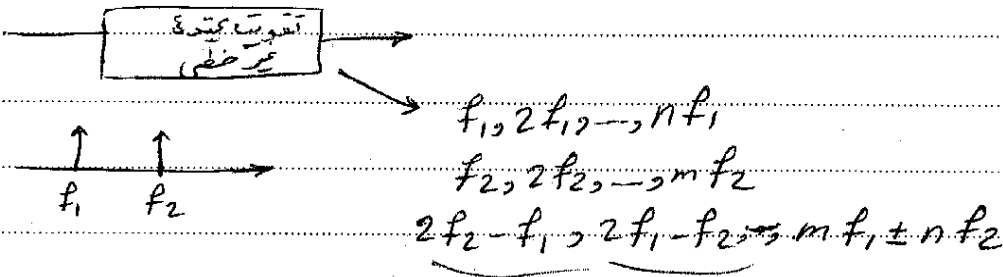 تقویت کننده
غیر خطی
f₁, 2f₁, —, nf₁
f₂, 2f₂, —, mf₂
f₁ f₂
2f₂ - f₁, 2f₁ - f₂, —, mf₁ ± nf₂